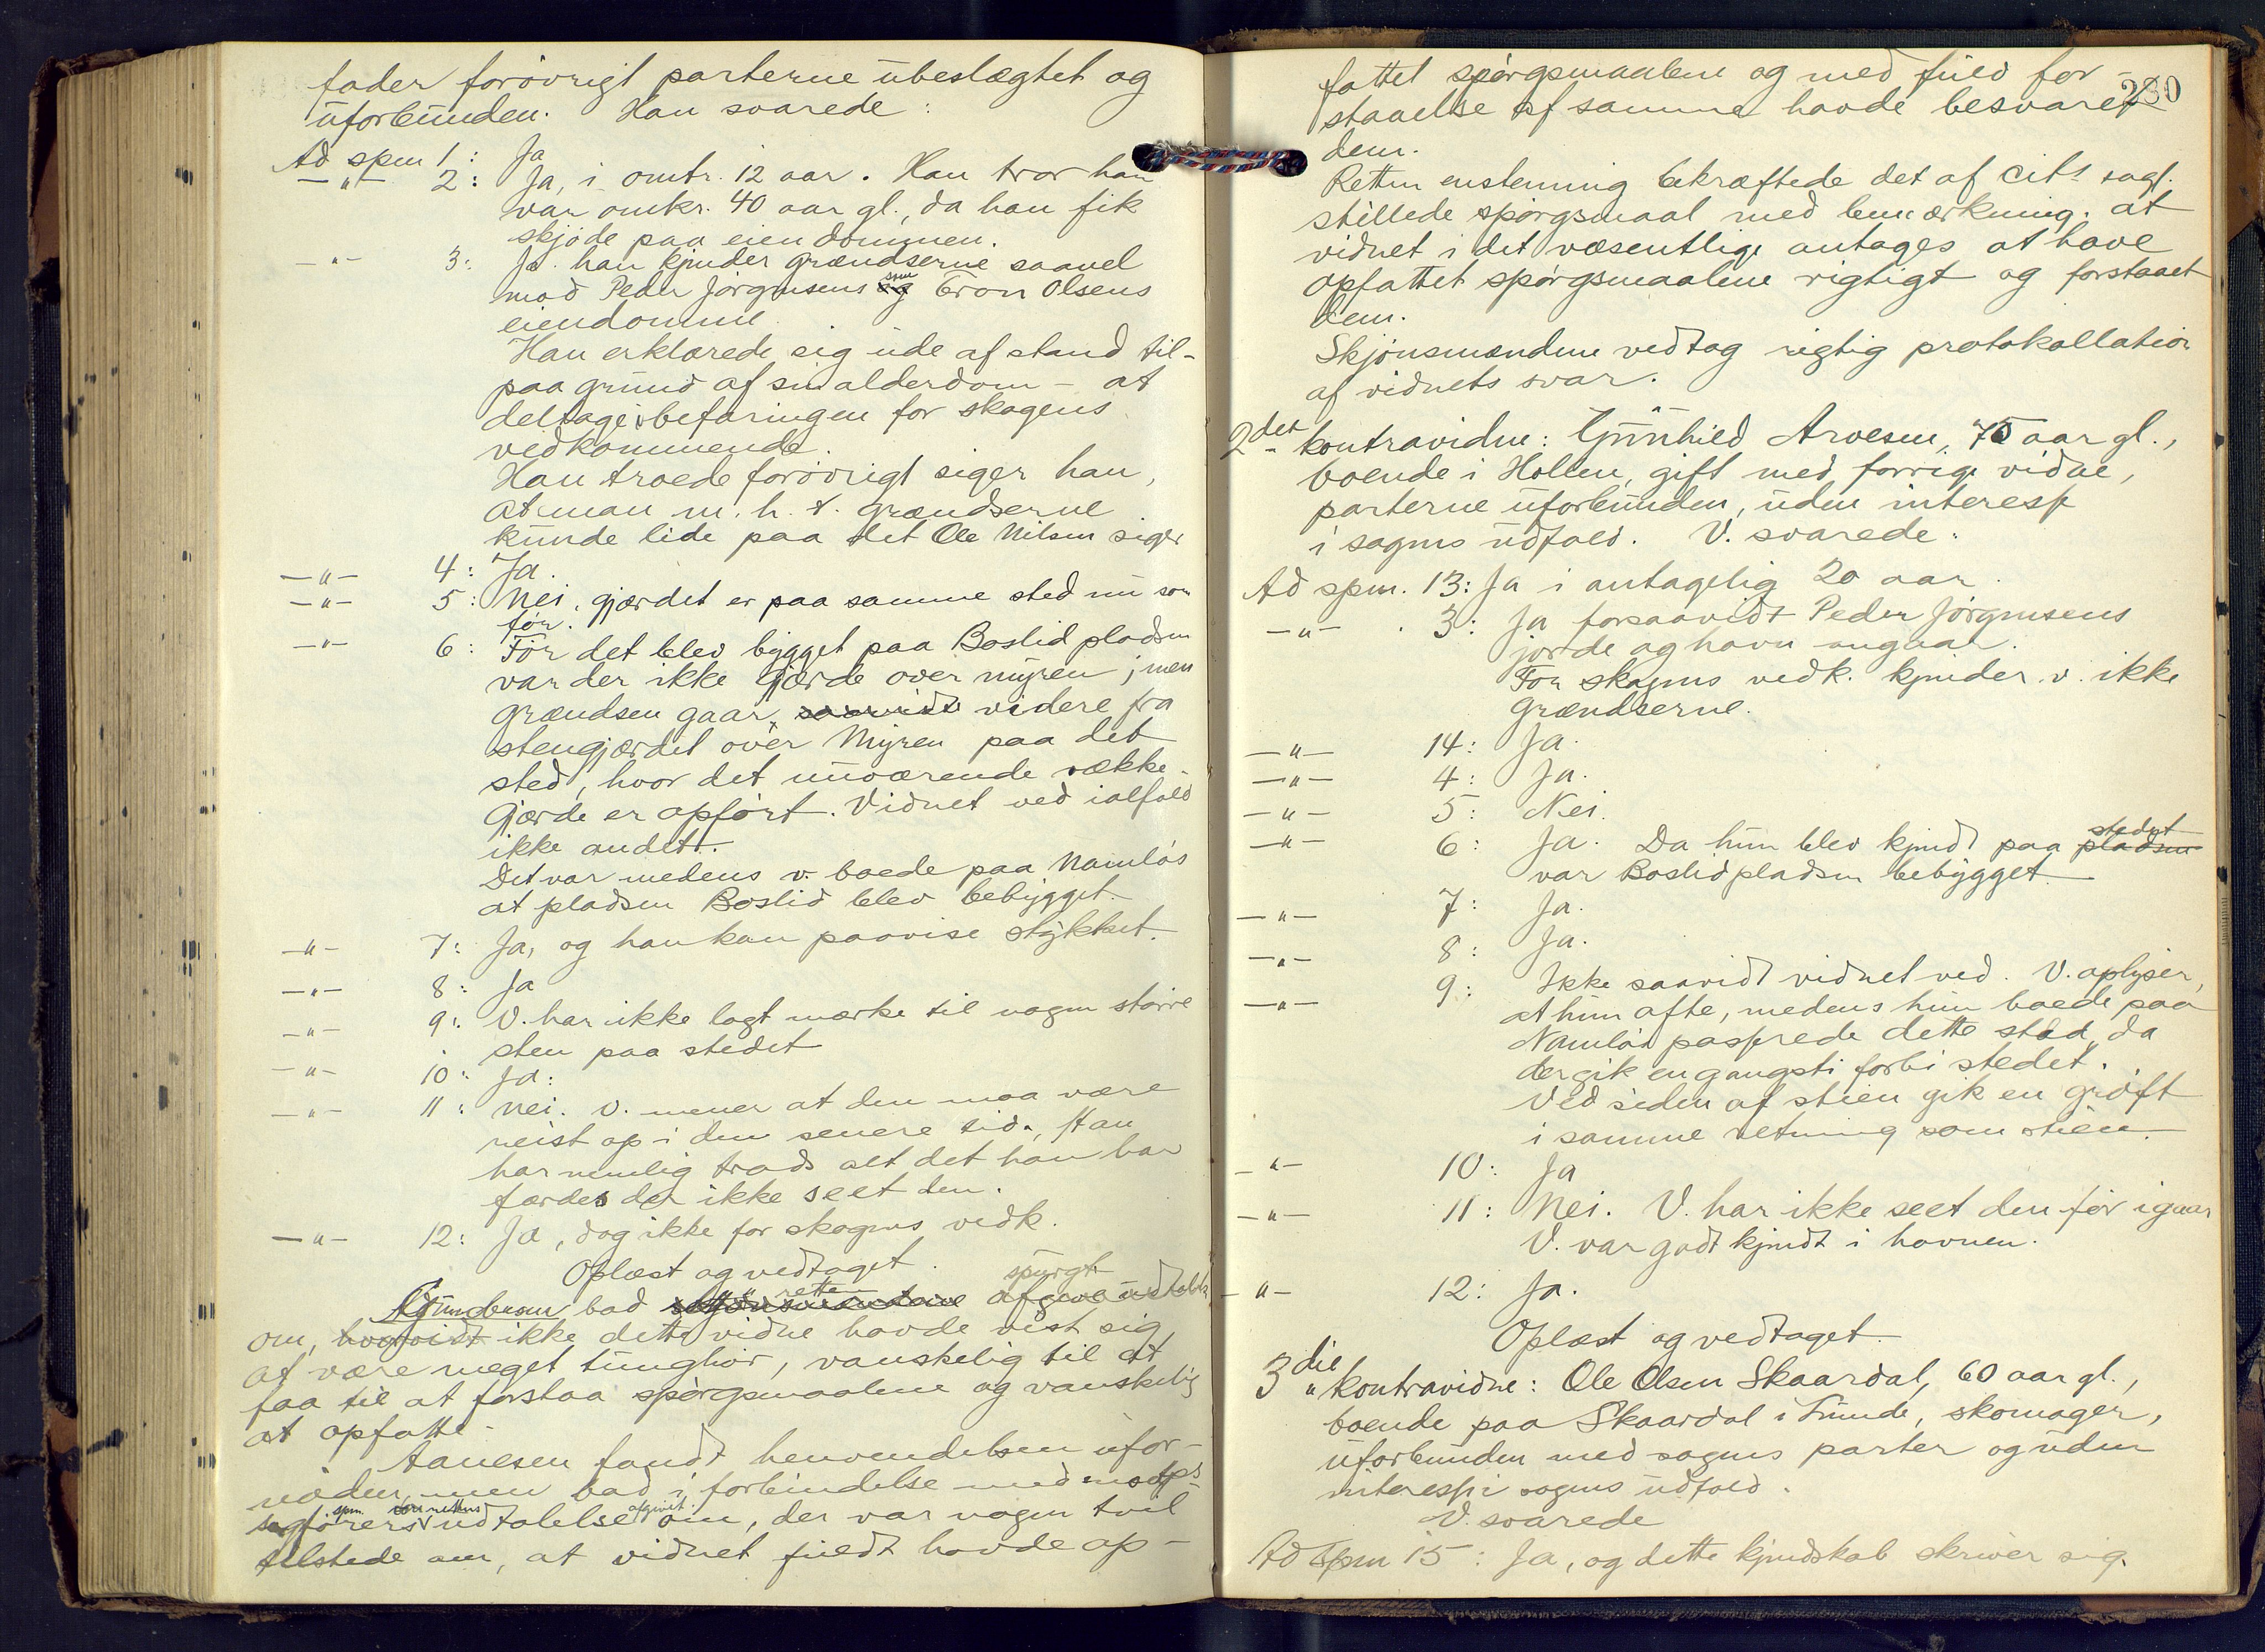 fader forøvrigt parterne ubeslægtet og
uforbunden. Han svarede:
Ad spm 1: Ja
—"— 2: Ja, i omtr. 12 aar. Han tror han
var omkr. 40 aar gl., da han fik
skjøde paa eiendommen.
—"— 3: Ja. han kjender grændserne saavel
mod Peder Jørgensens som Tron Olsens
eiendomme
Han erklærede sig ude af stand til-
paa grund af sin alderdom - at
deltage i befaringen for skogens
vedkommende.
Han troede forøvrigt siger han,
at man m. h. t. grændserne
kunde lide paa det Ole Nilsen siger
—"— 4: Ja.
—"— 5: Nei, gjærdet er paa samme sted nu som
før.
—"— 6: Før det blev bygget paa Boslid pladsen
var der ikke gjærde over myren; men
grændsen gaar saavidt videre fra
stengjærdet over Myren paa det
sted, hvor det nuværende række-
gjærde er opført. Vidnet ved ialfald
ikke andet.
Det var medens v. boede paa Namløs
at pladsen Boslid blev bebygget.
—"— 7: Ja, og han kan paavise stykket.
—"— 8: Ja
—"— 9: V. har ikke lagt mærke til nogen større
sten paa stedet
—"— 10: Ja.
—"— 11: Nei. V. mener at den maa være
reist op i den senere tid. Han
har nemlig trods alt det han har
færdes der ikke seet den.
—"— 12: Ja, dog ikke for skogens vedk.
Oplæst og vedtaget.
Gundersen bad skjønsmændene retten spurgt afgive udtalelse
om, hvorvidt ikke dette vidne havde vist sig
at være meget tunghør, vanskelig til at
faa til at forstaa spørgsmaalene og vanskelig
at opfatte
Aanesen fandt henvendelsen ufor-
nøden, men bad i forbindelse med modp.s
sagførers spm. om rettens udtalelse afgivet om, der var nogen tvil
tilstede om, at vidnet fuldt havde op-
230
fattet spørgsmaalene og med fuld for-
staaelse af samme havde besvaret
dem.
Retten enstemmig bekræftede det af cits sagf.
stillede spørgsmaal med bemærkning. at
vidnet i det væsentlige antages at have
opfattet spørgsmaalene rigtigt og forstaaet
dem.
Skjønsmændene vedtog rigtig protokollation
af vidnets svar.
2det kontravidne: Gunhild Arvesen, 75 aar gl.,
boende i Hollen, gift med forrige vidne,
parterne uforbunden, uden interesse
i sagens udfald. V. svarede:
Ad spm. 13: Ja i antagelig 20 aar.
—"— 3: Ja forsaavidt Peder Jørgensens
jorde og havn angaar.
For skogens vedk. kjender v. ikke
grændserne.
—"— 14: Ja.
—"— 4: Ja.
—"— 5: Nei.
—"— 6: Ja. Da hun blev kjendt paa pladsen stedet
var Boslidpladsen bebygget
—"— 7: Ja.
—"— 8: Ja.
—"— 9: Ikke saavidt vidnet ved. V. oplyser,
at hun ofte, medens hun boede paa
Namløs passerede dette sted, da
der gik en gangsti forbi stedet.
Ved siden af stien gik en grøft
i samme retning som stien.
—"— 10: Ja
—"— 11: Nei. V. har ikke seet den før igaar
V. var godt kjendt i havnen.
—"— 12: Ja.
Oplæst og vedtaget.
3die kontravidne: Ole Olsen Skaardal, 60 aar gl.,
boende paa Skaardal i Lunde, skomager,
uforbunden med sagens parter og uden
interesse i sagens udfald.
V. svarede
Ad Spm 15: Ja, og dette kjendskab skriver sig